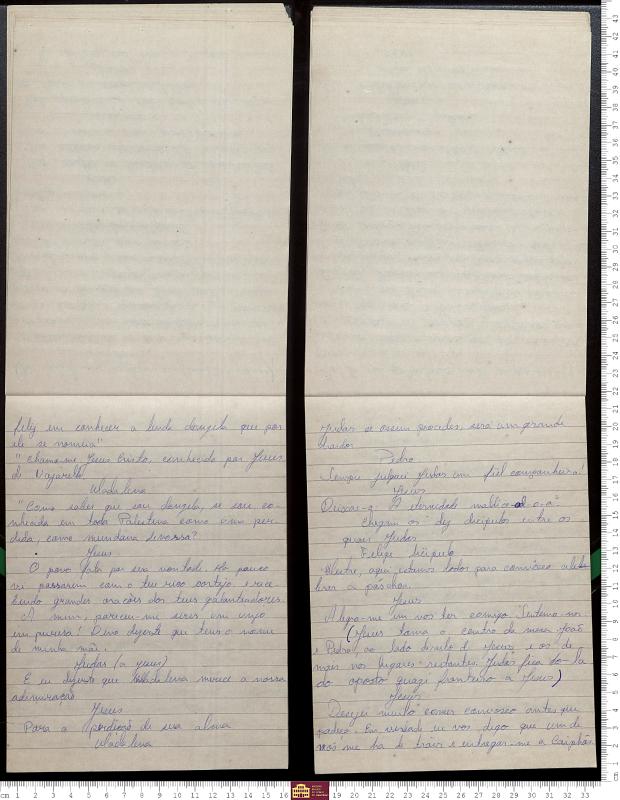 feliz em conhecer a linda donzela que por
ele se nomeia"
"Chama-me Jesus Cristo, conhecido por Jesus
de Nazareth
Madalena
"Como sabes que sou donzela, se sou co-
nhecida em toda Palestina como uma per-
dida, como mundana
Jesus
O povo fala por sua vontade. Ha pouco
vi passarem com o teu rico cortejo, e rece-
bendo grandes orações dos teus galanteadores.
A mim, pareceu-me seres um anjo
em pureza! Devo dizerte que tens o nome
de minha mãe.
Judas (a Jesus)
E eu dizerte que Madalena merece a nossa
admiração
Jesus
Para a perdição de sua alma
Madalena
Judas se assim procedes, será um grande
traidor
Pedro
Sempre julguei Judas um fiel companheiro!
Jesus
Deixae-o: A eternidade
Chegam os dez discipulos entre os
quais Judas
Felipe discipulo
Mestre, aqui estamos todos para convosco cele-
brar a páschoa.
Jesus
Alegra-me em vos ter comigo. Sentemo-nos
(Jesus toma o centro da mesa. João
e Pedro, ao lado direito de Jesus e os de
mais nos lugares restantes. Judas fica do la
do oposto quazi fronteiro a Jesus)
Jesus
Desejei muito comer convosco antes que
padeça. Em verdade eu vos digo que um de
vós me ha de trair e entregar-me a Caiphás